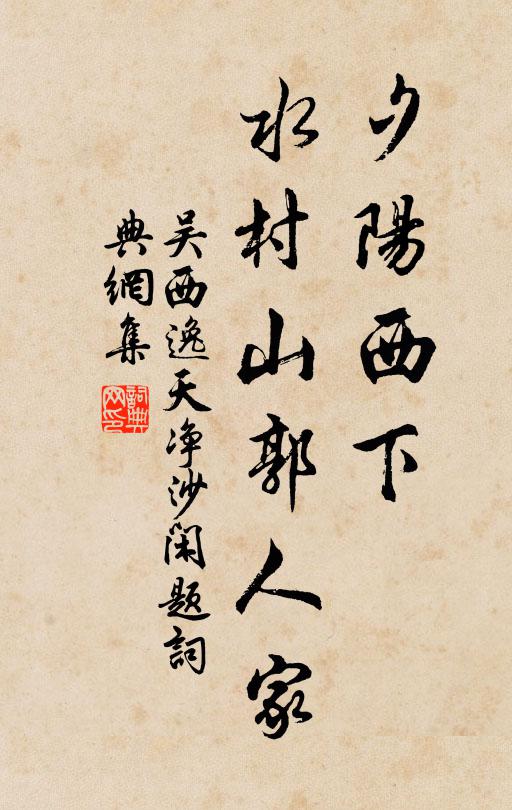 夕陽西下
水村山郭人家
吴西逸天净沙閑題詞
典網集
詞典
网印